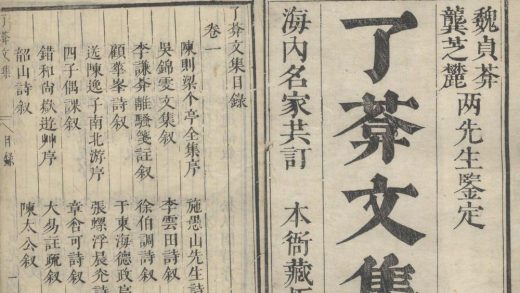 魏貞菴
龔芝麓
两先生鑒定
了葊文集
海内名家共訂
本衙藏板
了葊文集目錄
卷一
陳則梁个亭全集序
施愚山先生詩
吳錦雯文集叙
李雲田詩叙
李謙葊離騷箋註叙
徐伯調詩叙
顧華峯詩叙
于東海德政序
送陳逸子南北游序
張螺浮晨発詩
四子偶課叙
章含可詩叙
錯和尙嶽遊艸序
大易註疏叙
韶山詩叙
陳太公叙
了葊文集
目錄
一